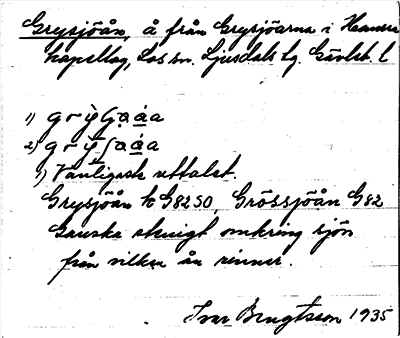 Grysjöån, å från Grysjöarna i Hamra
kapellag, Los sn. Ljusdals tg. Gävleb. l
1) gry̆ʃo̯áa
2) gry̆ʃa̯áa
1) Vanligaste uttalet.
Grysjöån k G8230, Grössjöån G82
Ganska stenigt omkring sjön
från vilken ån rinner.
Ivar Bengtsson 1935